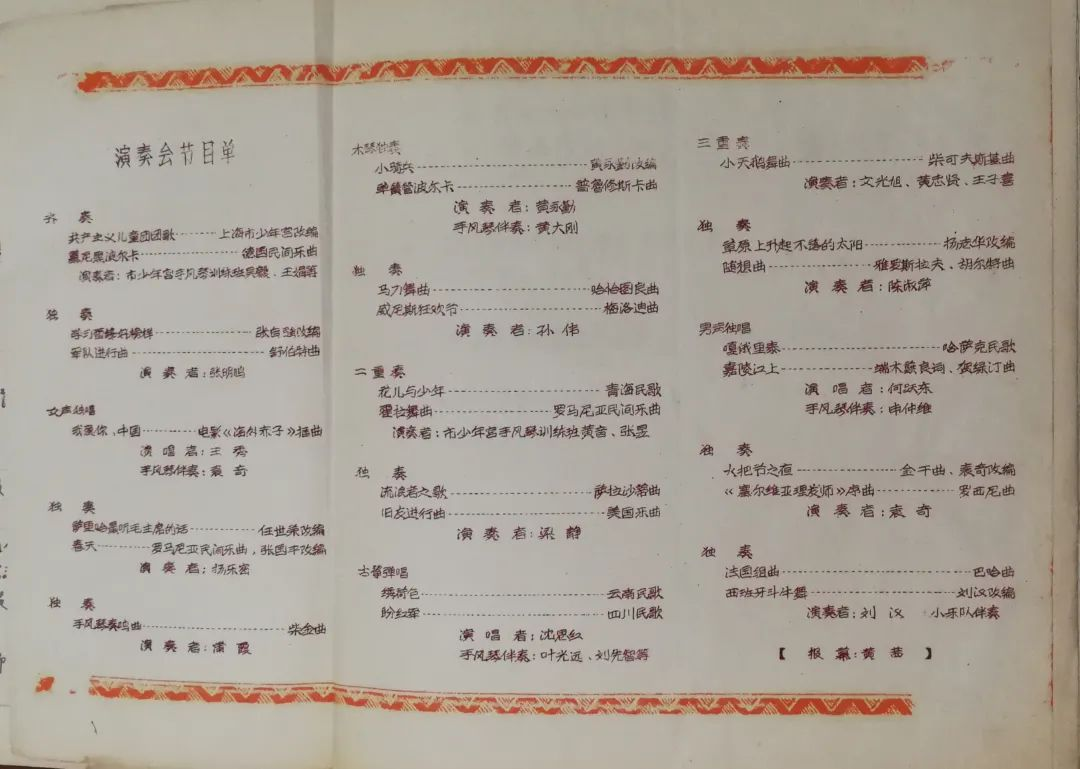 演奏会节目单
齐 奏
共产主义儿童团团歌----------上海市少年宫改编
墨尼黑波尔卡----------德国民间乐曲
演奏者：市少年宫手风琴训练班吴毅、王娟等
独 奏
学习雷锋好榜样----------张自强改编
军队进行曲----------舒伯特曲
演 奏 者：张明鸣
女声独唱
我爱你、中国----------电影《海外赤子》插曲
演 唱 者：王 秀
手风琴伴奏：袁 奇
独 奏
萨里哈最听毛主席的话----------任世荣改编
春天----------罗马尼亚民间乐曲，张国平改编
演 奏 者：扬乐容
独 奏
手风琴奏鸣曲----------柴金曲
演 奏 者：蒲 霞
木琴独奏
小骑兵----------黄永勤改编
单簧管波尔卡----------普鲁修斯卡曲
演 奏 者：黄永勤
手风琴伴奏：黄大刚
独 奏
马刀舞曲----------哈恰图良曲
威尼斯狂欢节----------梅洛迪曲
演 奏 者：孙 伟
二重奏
花儿与少年----------青海民歌
霍拉舞曲----------罗马尼亚民间乐曲
演奏者：市少年宫手风琴训练班黄音、张昱
独 奏
流浪者之歌----------萨拉沙蒂曲
旧友进行曲----------美国乐曲
演 奏 者：梁 静
古筝弹唱
绣荷包----------云南民歌
盼红军----------四川民歌
演 唱 者：沈思红
手风琴伴奏：叶光远、刘先智等
三重奏
小天鹅舞曲----------柴可夫斯基曲
演奏者：文光旭、黄志贤、王子喜
独 奏
草原上升起不落的太阳----------扬志华改编
随想曲----------雅罗斯拉夫、胡尔特曲
演 奏 者：陈淑萍
男声独唱
嘎哦里泰----------哈萨克民歌
嘉陵江上----------端木蕻良词、贺绿汀曲
演 唱 者：何跃东
手风琴伴奏：申仲维
独 奏
火把节之夜----------金干曲、袁奇改编
《塞尔维亚理发师》序曲----------罗西尼曲
演 奏 者：袁 奇
独 奏
法国组曲----------巴哈曲
西班牙斗牛舞----------刘汉改编
演奏者：刘 汉 小乐队伴奏
【 报 幕：黄 茜 】